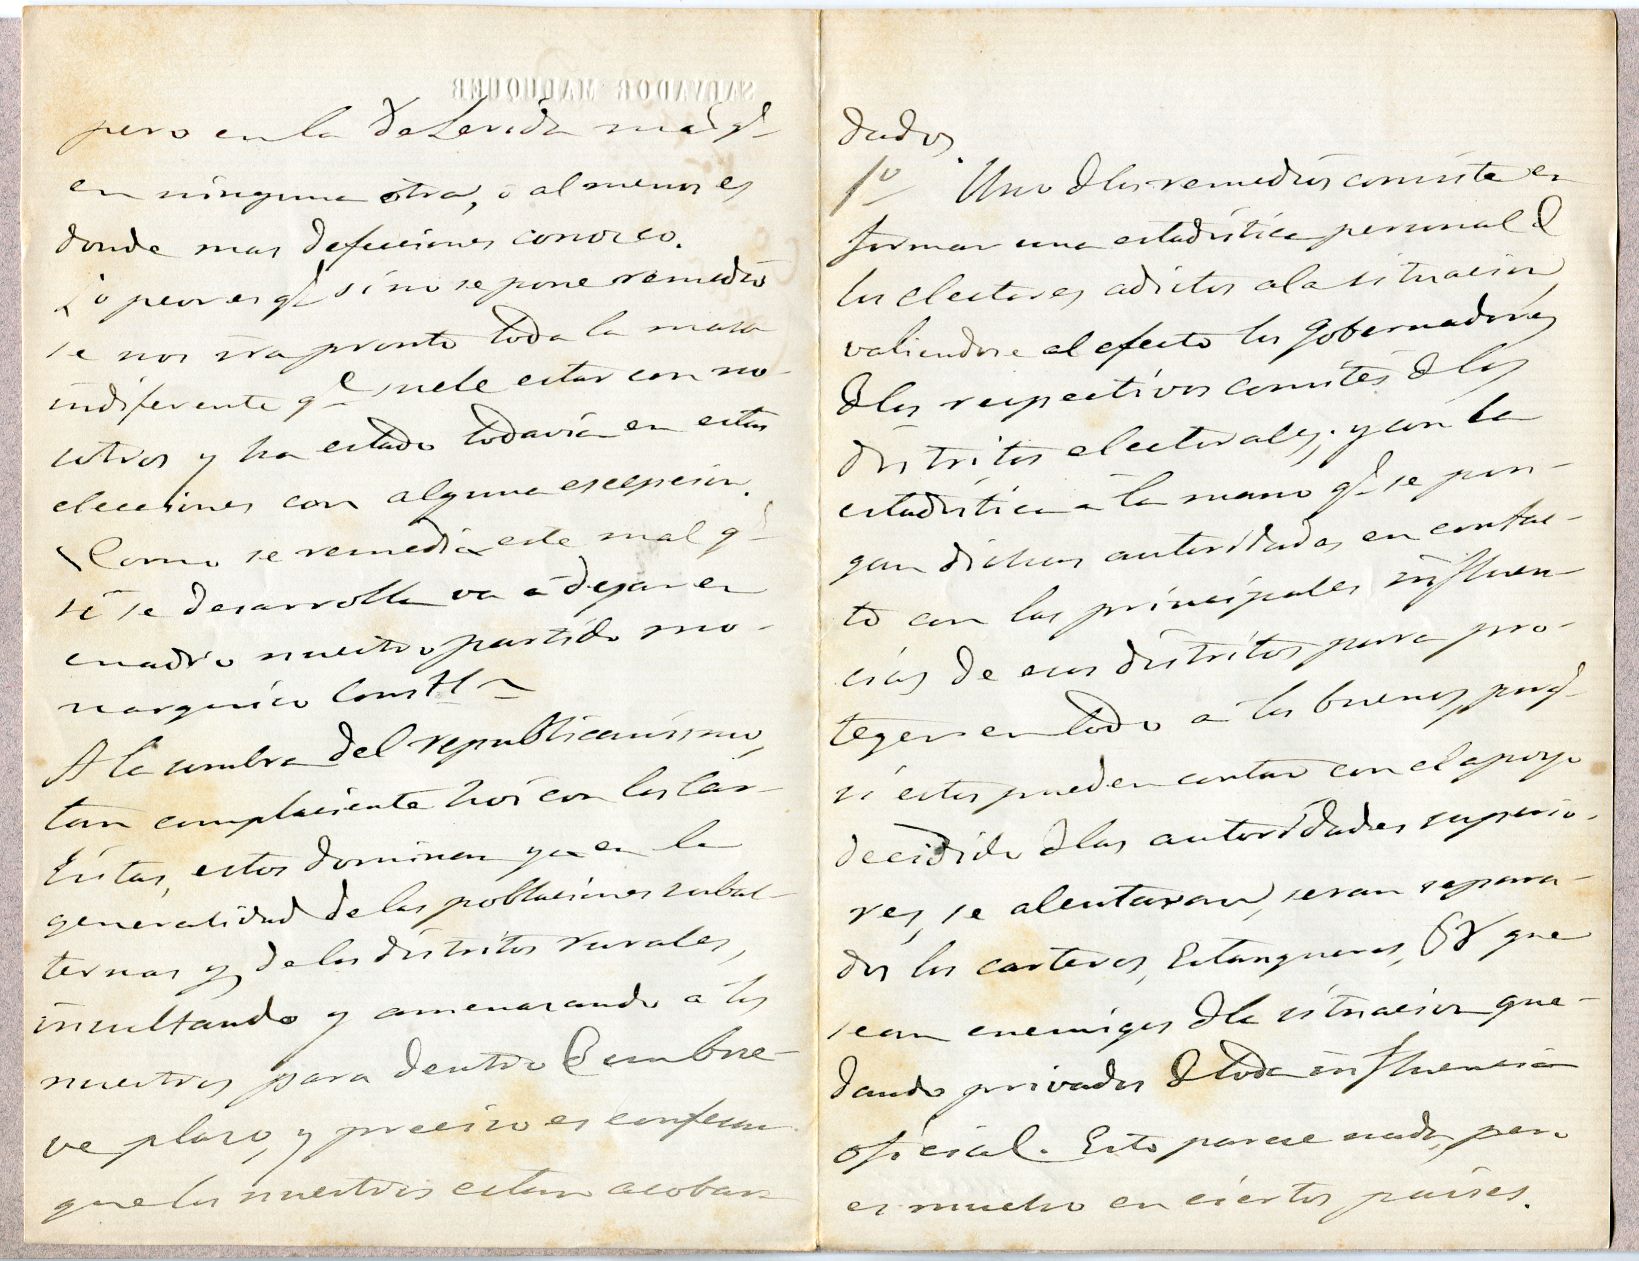 SALVADOR MALUQUER
pero en la de Lerida mas q.e
en ninguna otra, o al menos es
donde mas defecciones conozco.
Lo peor es q.e si no se pone remedio
se nos irá pronto toda la masa
indiferente q.e suele estar con no-
sotros y ha estado todavia en estas
elecciones con alguna escepcion.
Como se remedia este mal q.e
si se desarrolla va á dejar en
cuadro nuestro partido mo-
narquico Constl
A la sombra del republicanismo,
tan complaciente hoi con los Car-
listas, estos dominan ya en la
generalidad de las poblaciones subal-
ternas y de los distritos rurales,
insultando y amenazando a los
nuestros para dentro de un bre-
ve plazo, y preciso es confesar
que los nuestros estan acobar-
dados.
1º Uno de los remedios consiste en
formar una estadistica personal de
los electores adictos a la situacion,
valiendose al efecto los Gobernadores
de los respectivos comités de los
distritos electorales; y con la
estadistica á la mano q.e se pon-
gan dichas autoridades en contac-
to con las principales influen-
cias de esos distritos para pro-
teger en todo a los buenos, porq.e
si estos pueden contar con el apoyo
decidido de las autoridades superio-
res, se alentaran, seran separa-
dos los carteros, Estanqueros, &.ª que
sean enemigos de la situacion que-
dando privados de toda influencia
oficial. Esto parece nada, pero
es mucho en ciertos paises.